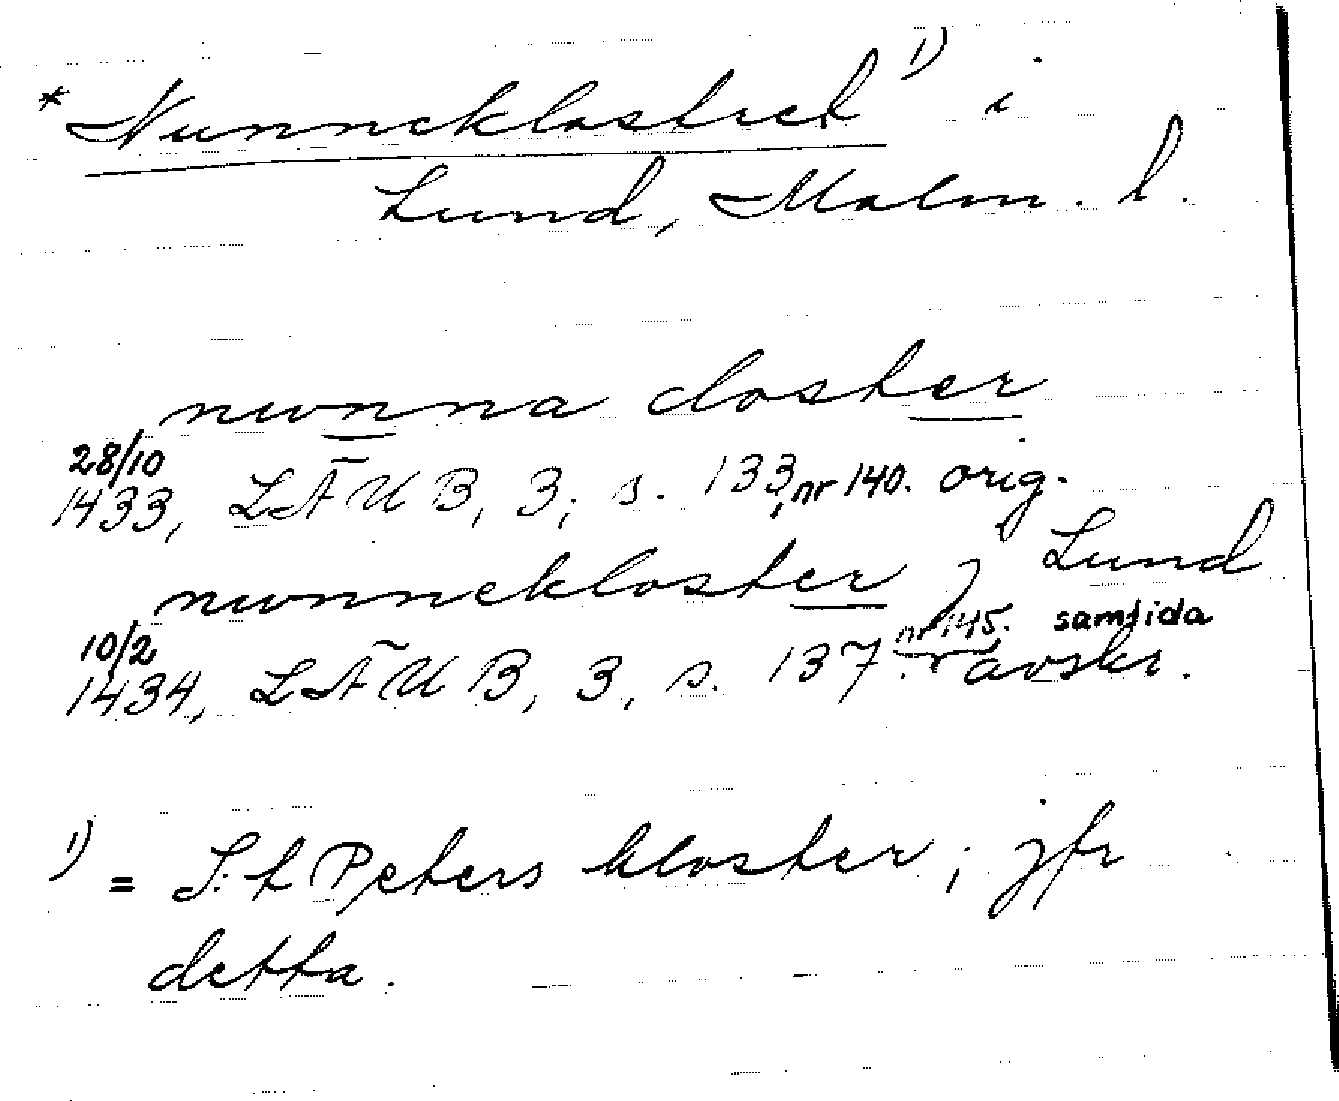 * Nunneklostret 1) i
Lund, Malm. l.
nwnna closter
28/10
1433, LÄUB, 3, s. 133, nr 140. orig.
nwnnekloster j Lund
10/2
1434, LÄUB, 3, s. 137. nr 145. samtida avskr.
1) = S:t Peters kloster; jfr
detta.